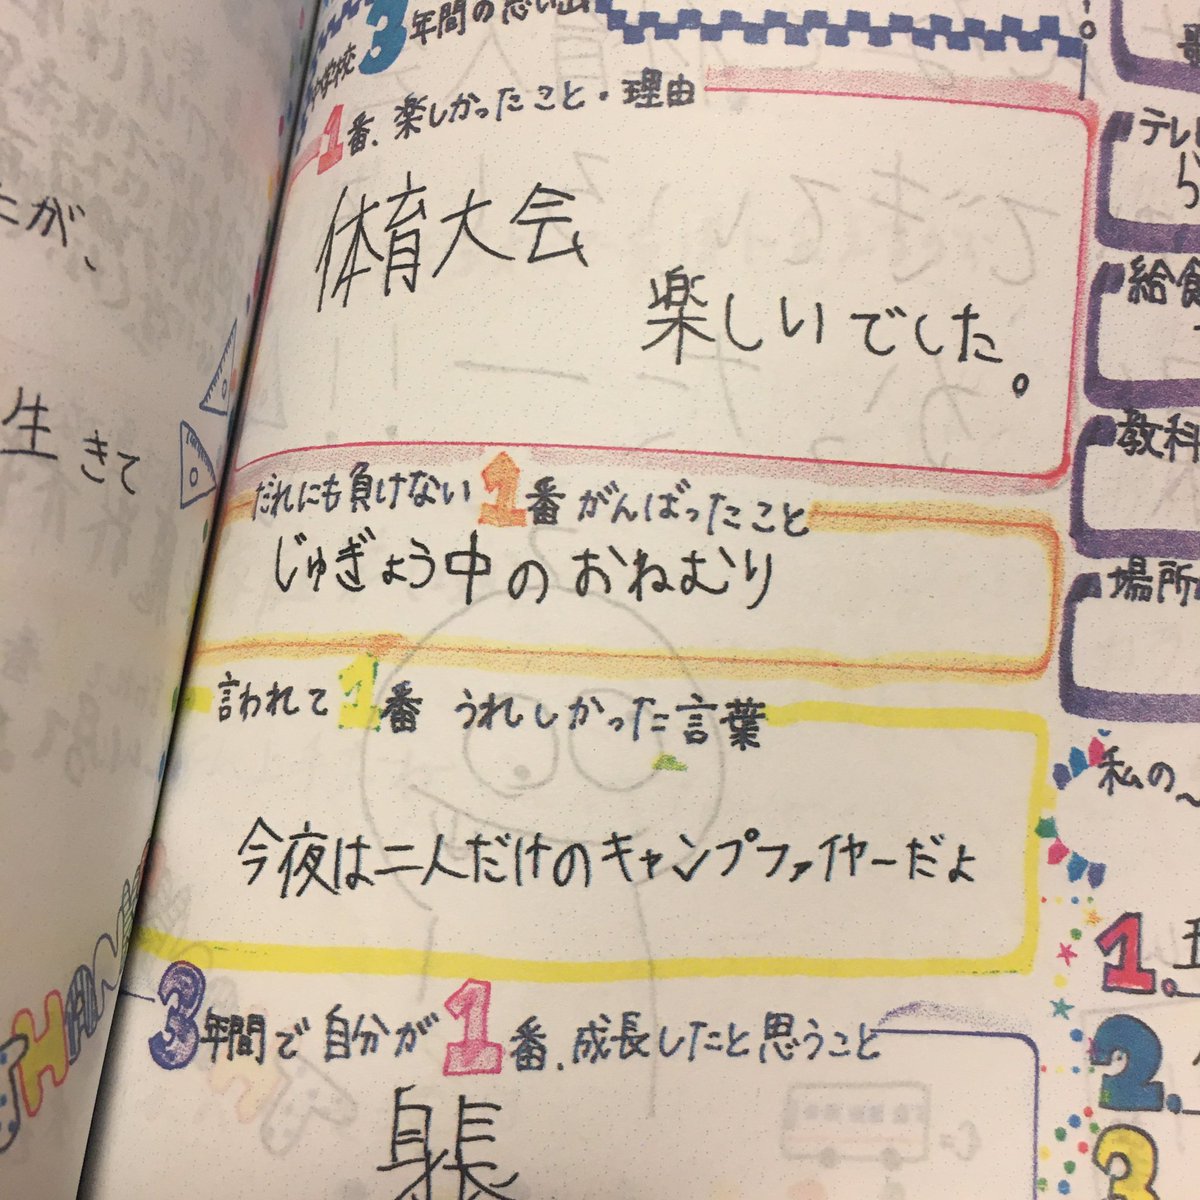 たが、
生きて
中学校3年間の思い出
1番、楽しかったこと・理由
体育大会
楽しいでした。
だれにも負けない1番がんばったこと
じゅぎょう中のおねむり
言われて1番うれしかった言葉
今夜は二人だけのキャンプファイヤーだよ
3年間で自分が1番、成長したと思うこと
身長
テレ
給食
教科
場所
私の
1.
2.
3